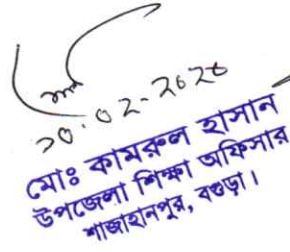 ১০.০২-২০২৫
মোঃ কামরুল হাসান
উপজেলা শিক্ষা অফিসার
শাজাহানপুর, বগুড়া।